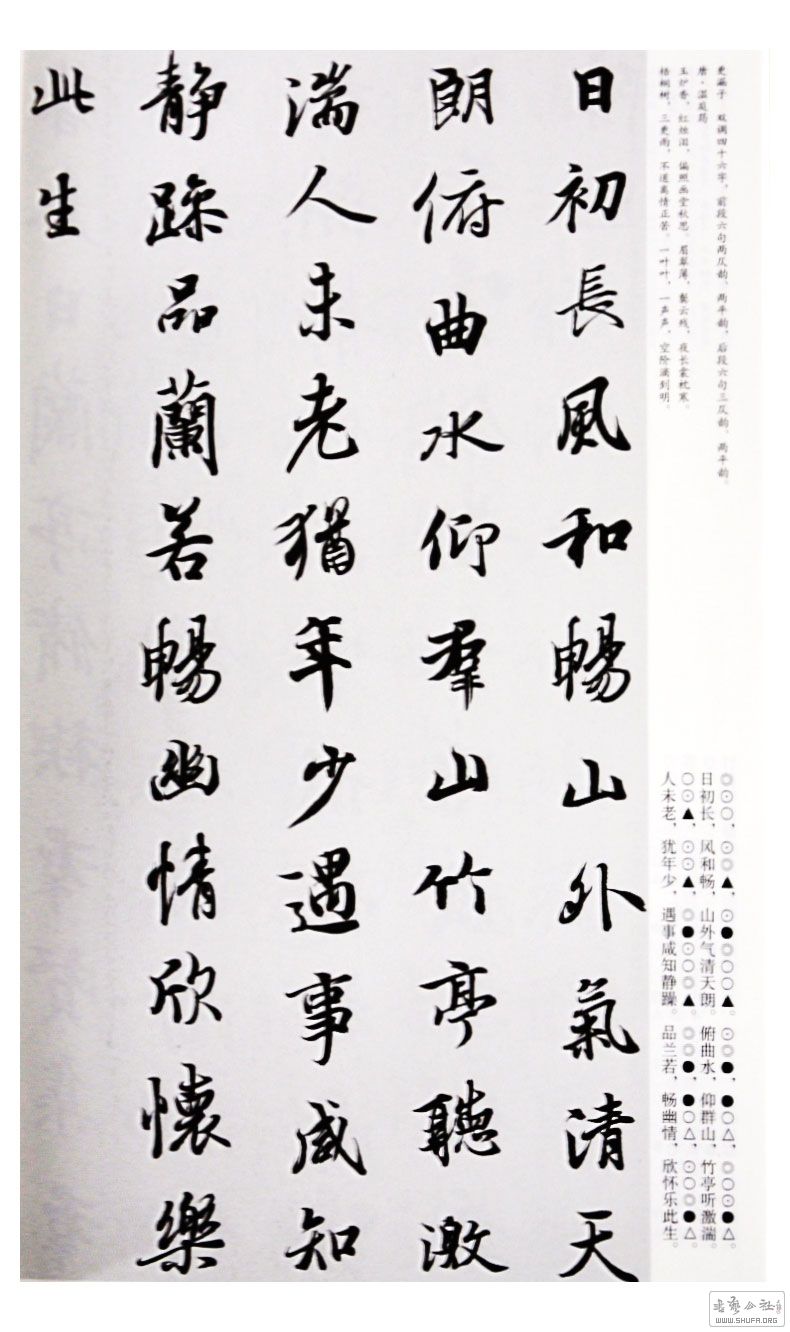 更漏子 双调四十六字，前段六句两仄韵、两平韵，后段六句三仄韵、两平韵。
唐·温庭筠
玉炉香，红烛泪，偏照画堂秋思。眉翠薄，鬓云残，夜长衾枕寒。
梧桐树，三更雨，不道离情正苦。一叶叶，一声声，空阶滴到明。
◎⊙○，⊙◎▲，⊙●◎○○▲。⊙◎●，●○△，◎○⊙●△。
日初长，风和畅，山外气清天朗。俯曲水，仰群山，竹亭听激湍。
○⊙▲，⊙⊙▲，◎●⊙○◎▲。◎◎●，●○△，⊙○◎●△。
人未老，犹年少，遇事咸知静躁。品兰若，畅幽情，欣怀乐此生。
日初長風和暢山外氣清天
朗俯曲水仰羣山竹亭聽激
湍人未老猶年少遇事咸知
静躁品蘭若暢幽情欣懷樂
此生
WWW.SHUFA.ORG